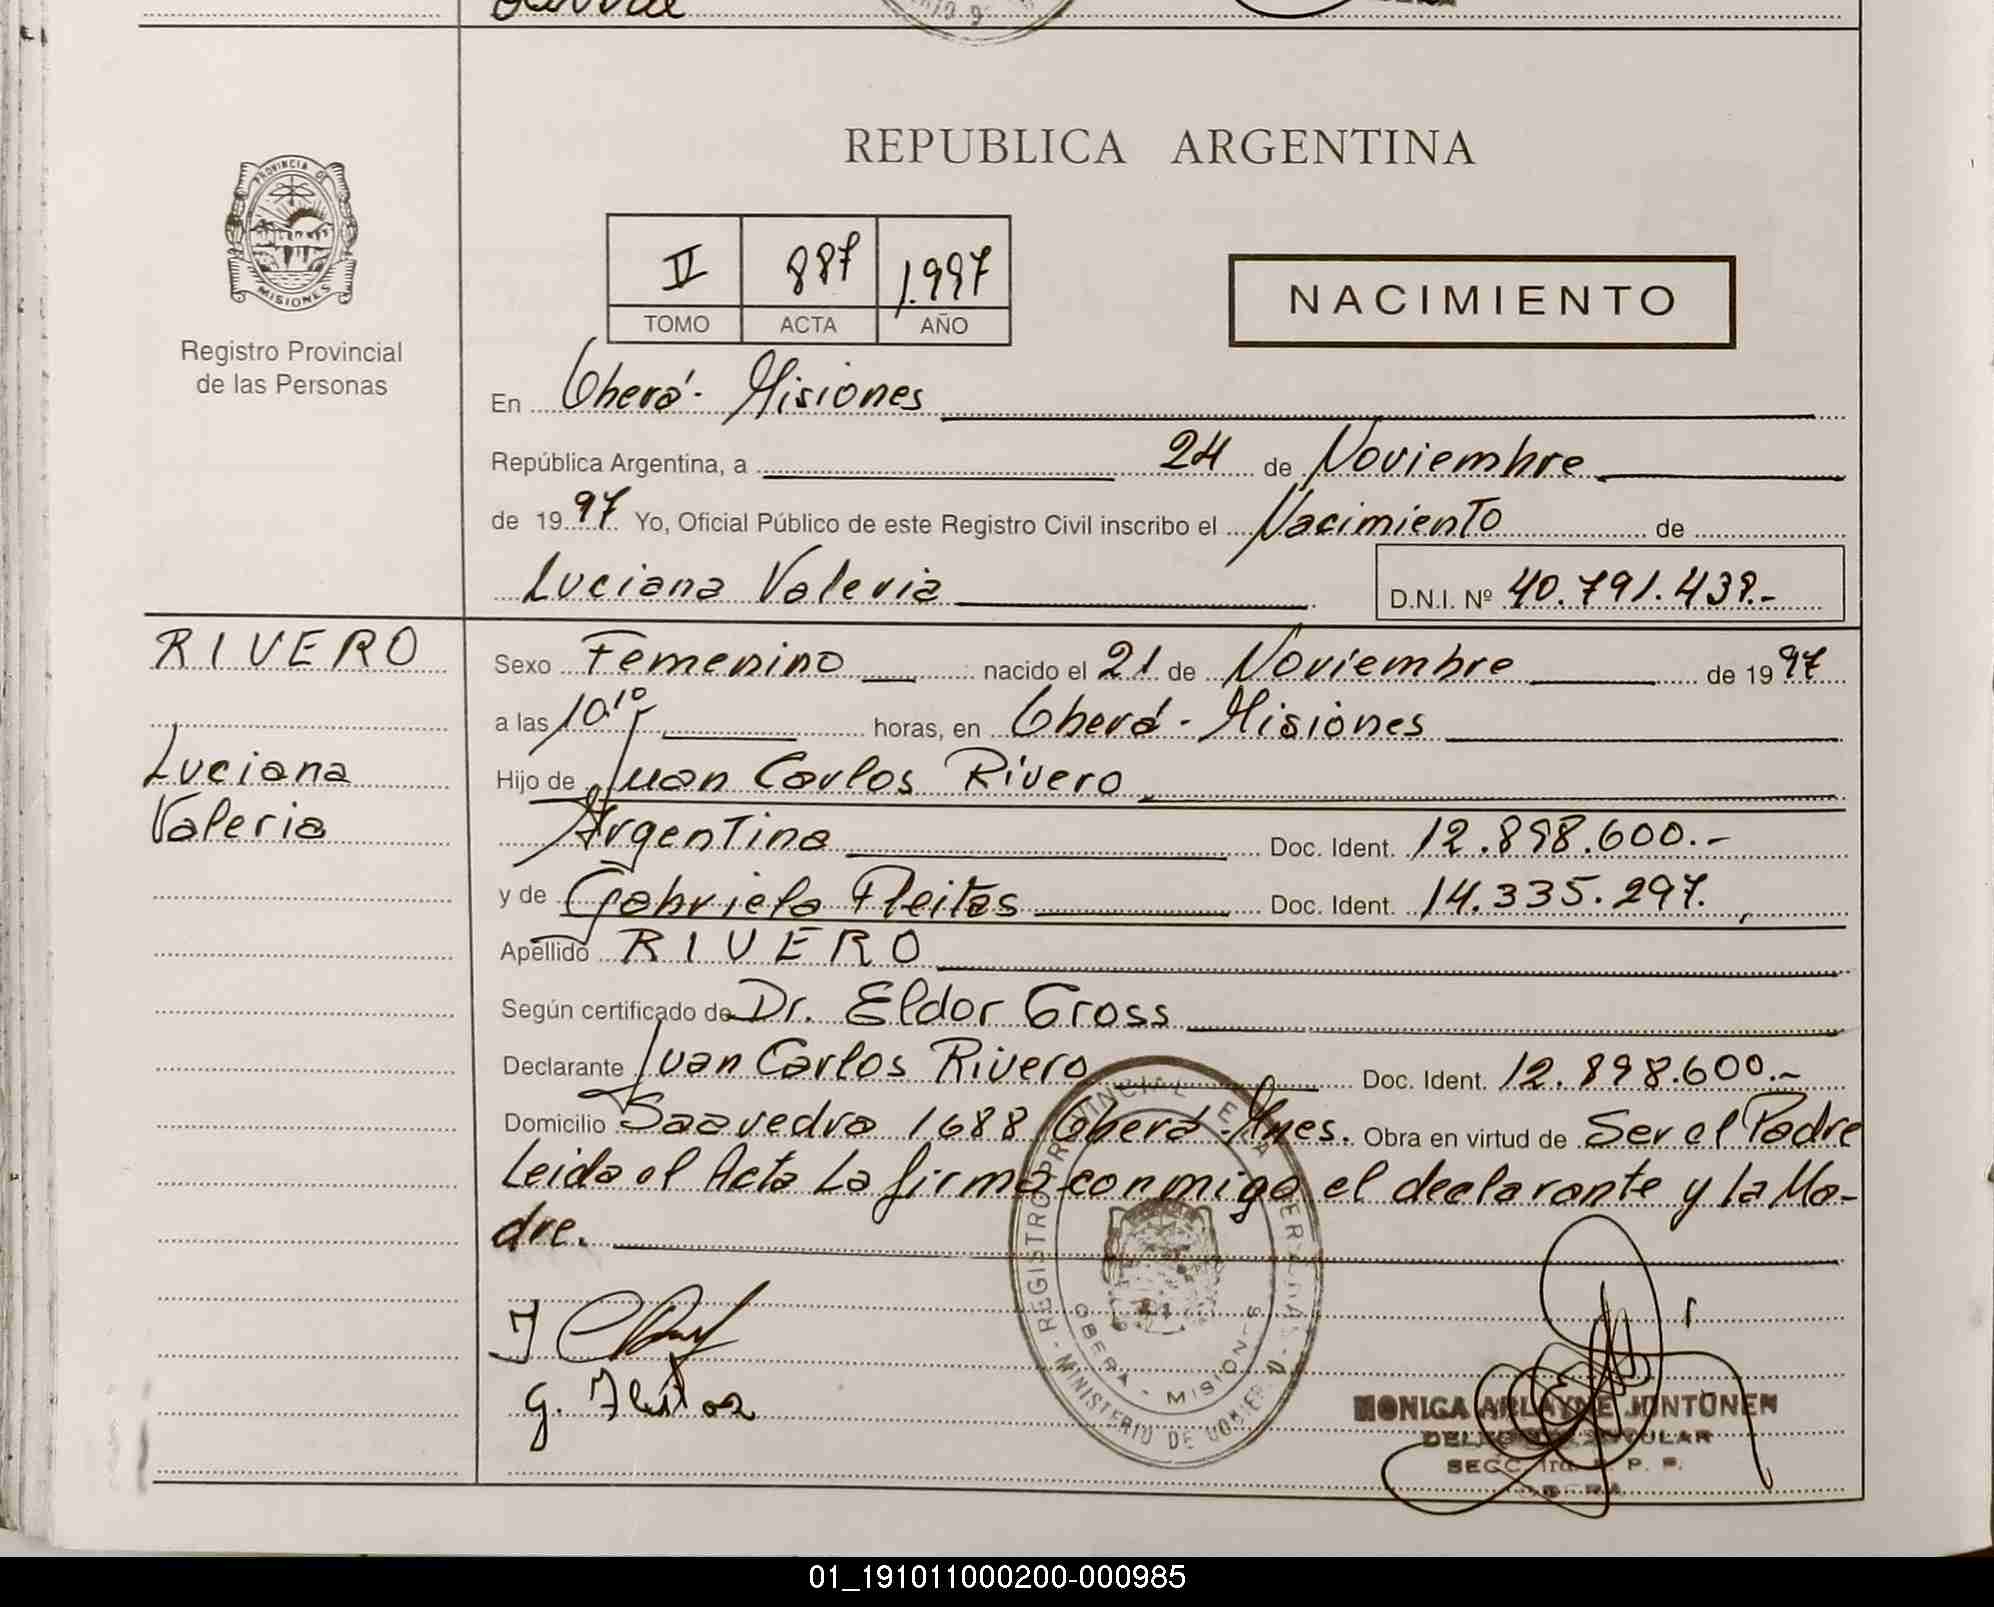 PROVINCIA DE
MISIONES
Registro Provincial
de las Personas
REPUBLICA ARGENTINA
II 887 1.997
TOMO ACTA AÑO
NACIMIENTO
En Oberá - Misiones
República Argentina, a 24 de Noviembre
de 1997 Yo, Oficial Público de este Registro Civil inscribo el Nacimiento de
Luciana Valeria D.N.I. Nº 40.791.439.-
RIVERO
Luciana
Valeria
Sexo Femenino nacido el 21 de Noviembre de 1997
a las 10.10 horas, en Oberá - Misiones
Hijo de Juan Carlos Rivero
Argentina Doc. Ident. 12.898.600.-
y de Gabriela Fleitas Doc. Ident. 14.335.297.
Apellido RIVERO
Según certificado de Dr. Eldor Gross
Declarante Juan Carlos Rivero Doc. Ident. 12.898.600.-
Domicilio Saavedra 1688 Oberá - Mnes. Obra en virtud de Ser el Padre
Leida el Acta La firma conmigo el declarante y la Ma-
dre.
G. Fleitas
REGISTRO PROVINCIAL DE LAS PERSONAS
MINISTERIO DE GOBIERNO
OBERA - MISIONES
MONICA ARLAYNE JUNTUNEN
DELEGADA TITULAR
SECC. 1ra. R. P. P.
OBERA
01_191011000200-000985